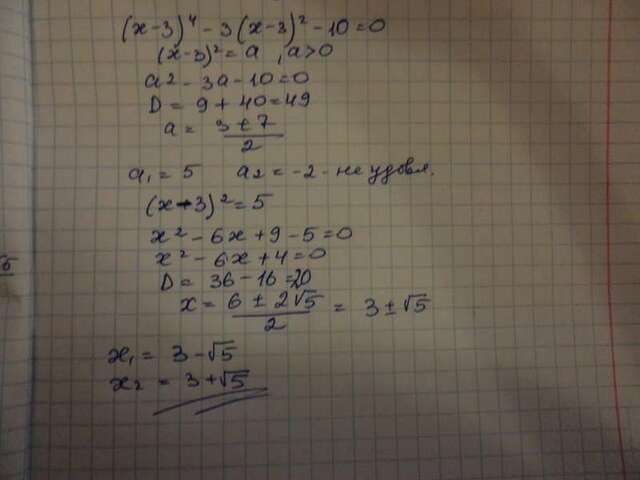 (x-3)⁴ - 3(x-3)² - 10 = 0
(x-3)² = a , a>0
a² - 3a - 10 = 0
D = 9 + 40 = 49
a = (3 ± 7)/2
a₁ = 5 a₂ = -2 - не удовл.
(x-3)² = 5
x² - 6x + 9 - 5 = 0
x² - 6x + 4 = 0
D = 36 - 16 = 20
x = (6 ± 2√5)/2 = 3 ± √5
x₁ = 3 - √5
x₂ = 3 + √5